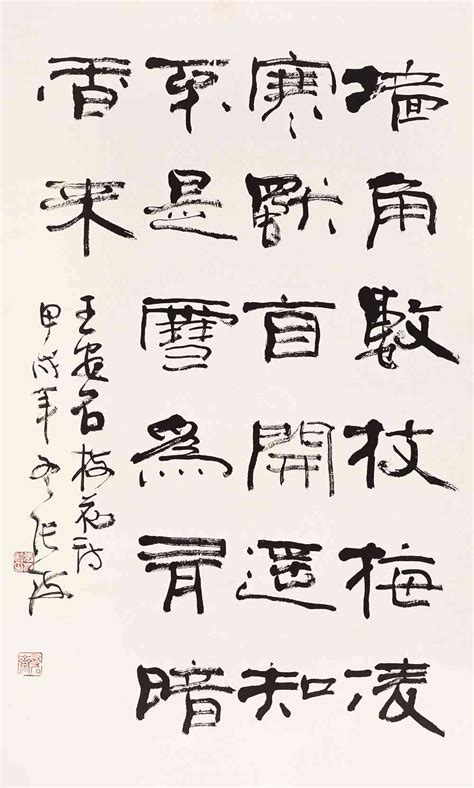 墙角數枝梅凌
寒獨自開遥知
不是雪為有暗
香来
王安石梅花诗
甲戌年冬张海